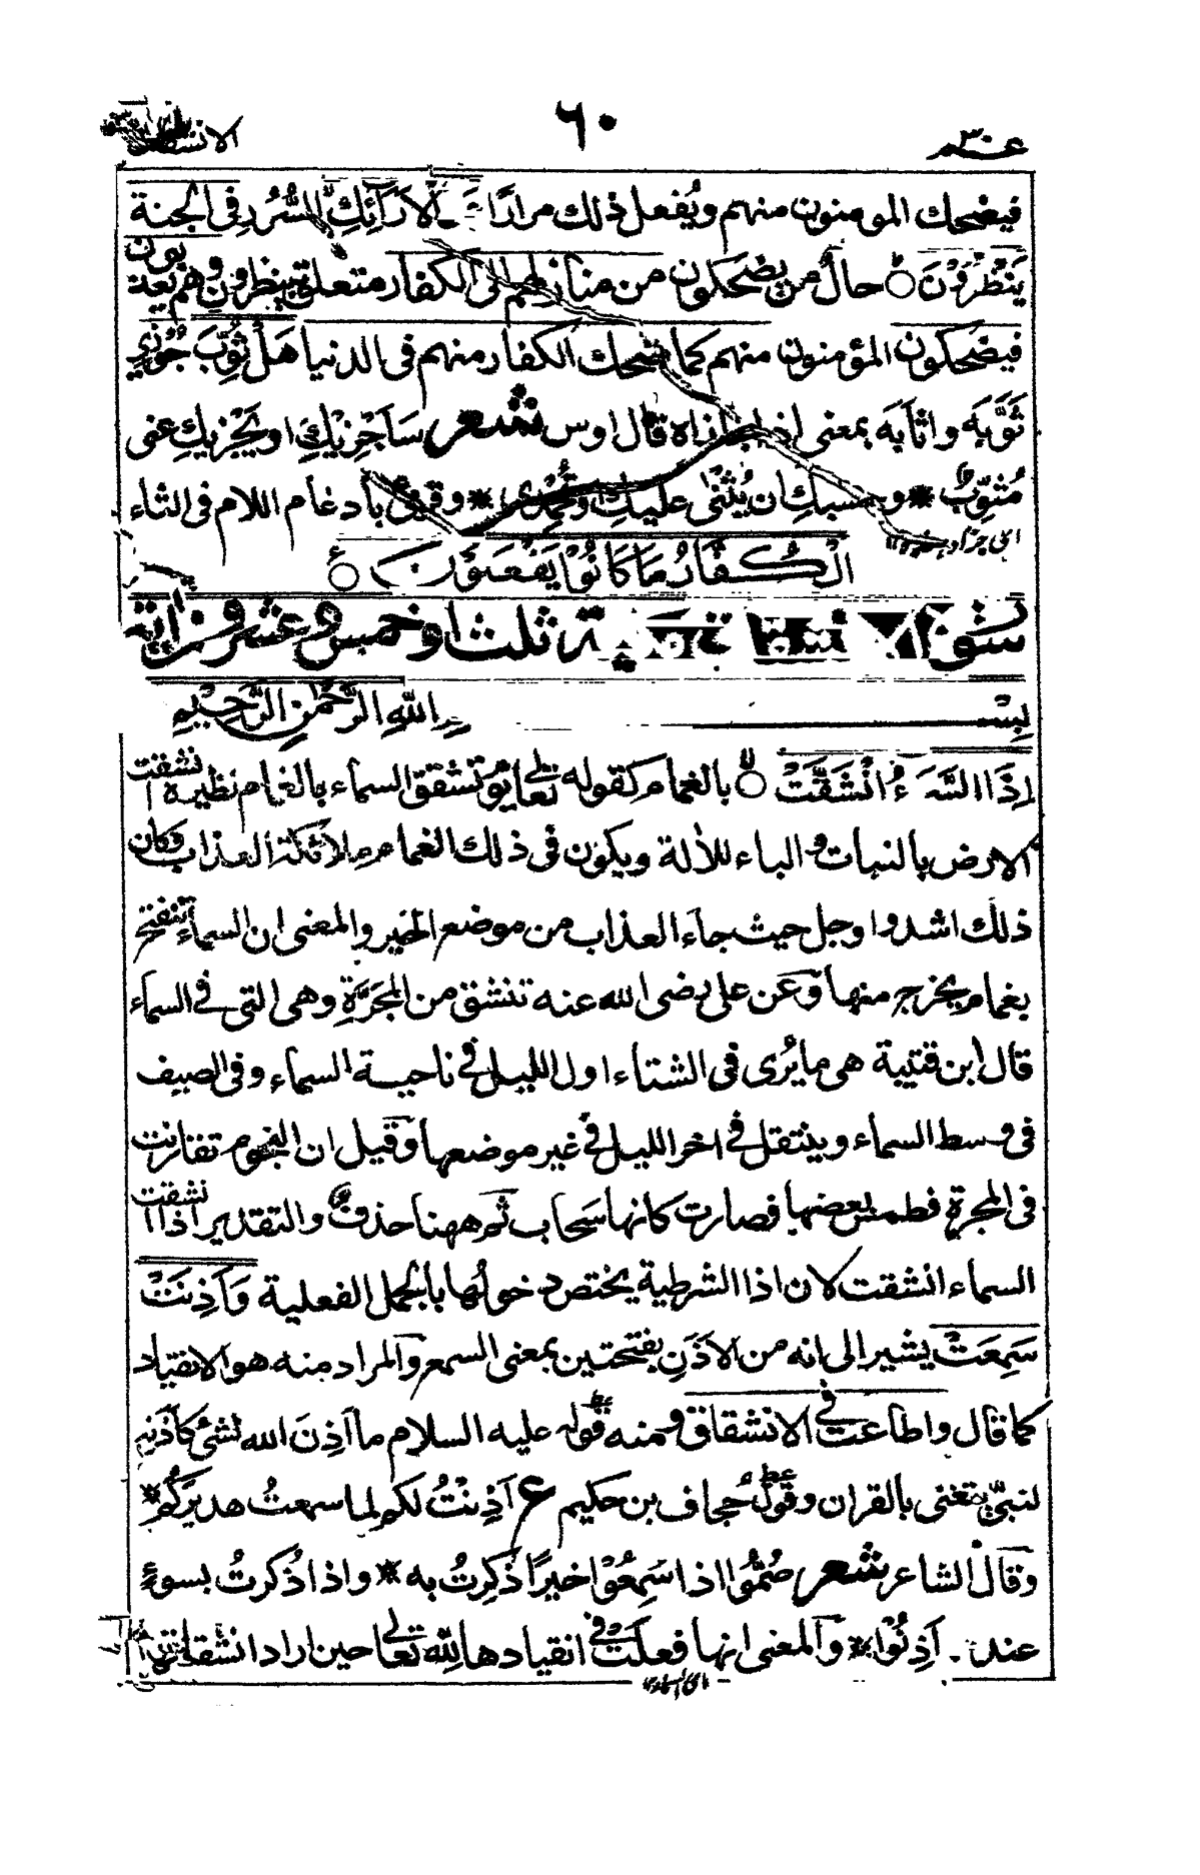 عـــم ٣٠
٦٠
فيضحك المومنون منهم ويُفعل ذلك مرارًا الْاَرَآئِكِ السُّرُرِ فى الجنة
يَنْظُرُوْنَ حالٌ من يضحكون من منازلهم الى الكفار متعلق بينظرون وهم يعذبون
فيضحكون المؤمنون منهم كما ضحك الكفار منهم فى الدنيا هَلْ ثُوِّبَ جُوْزِي
ثَوَّبَه واثابَه بمعنى اذا جازاه قال اوس شعر سَاَجْزِيْكِ او يَجْزِيكِ عنى
مُثَوِّبٌ * وحسبكِ ان يُثْنٰى عليكِ وتُحْمَدِى * وقرئ بادغام اللام فى الثاء
الْكُفَّارُ مَا كَانُوْا يَفْعَلُوْنَ
ثلث او خمس وعشرون اٰية
بِسْــــمِ اللّٰهِ الرَّحْمٰنِ الرَّحِيْمِ
اِذَا السَّمَآءُ انْشَقَّتْ بالغمام كقوله تعالى يوم تشقق السماء بالغمام نظيره انشقت
الارض بالنبات والباء للاٰلة ويكون فى ذلك الغمام ملائكة العذاب وكان
ذلك اشد واوجل حيث جاء العذاب من موضع الخير والمعنى ان السماء تنفتح
بغمام يخرج منها وعن على رضى الله عنه تنشق من المجَرَّةِ وهى التى فى السماء
قال ابن قتيبة هى ما يُرٰى فى الشتاء اول الليل فى ناحية السماء وفى الصيف
فى وسط السماء وينتقل فى اخر الليل فى غير موضعها وقيل ان النجوم تقارنت
فى المجرة فطمس بعضها فصارت كانها سَحاب ثم ههنا حذف والتقدير اذا انشقت
السماء انشقت لان اذا الشرطية يختص دخولُها بالجمل الفعلية وَاَذِنَتْ
سَمِعَتْ يشير الى انه من الاَذَنِ بفتحتين بمعنى السمع والمراد منه هو الانقياد
كما قال واطاعت فى الانشقاق ومنه قوله عليه السلام ما اَذِنَ الله لشئ كاَذَنِه
لنبيّ يتغنى بالقران وقول جحاف بن حكيم ع اَذِنْتُ لكم لما سمعتُ هديرَكُم *
وقال الشاعر شعر صُمٌّ اذا سَمِعُوْا خيرًا ذُكِرتُ به * واذا ذُكرتُ بسوءٍ
عندهم اَذِنُوْا * والمعنى انها فعلت فى انقيادها لله تعالى حين اراد انشقاقها